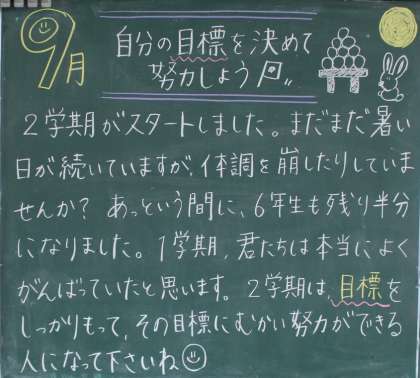 9月
自分の目標を決めて
努力しよう
2学期がスタートしました。まだまだ暑い
日が続いていますが、体調を崩したりしていま
せんか? あっという間に、6年生も残り半分
になりました。1学期、君たちは本当によく
がんばっていたと思います。2学期は、目標を
しっかりもって、その目標にむかい努力ができる
人になって下さいね